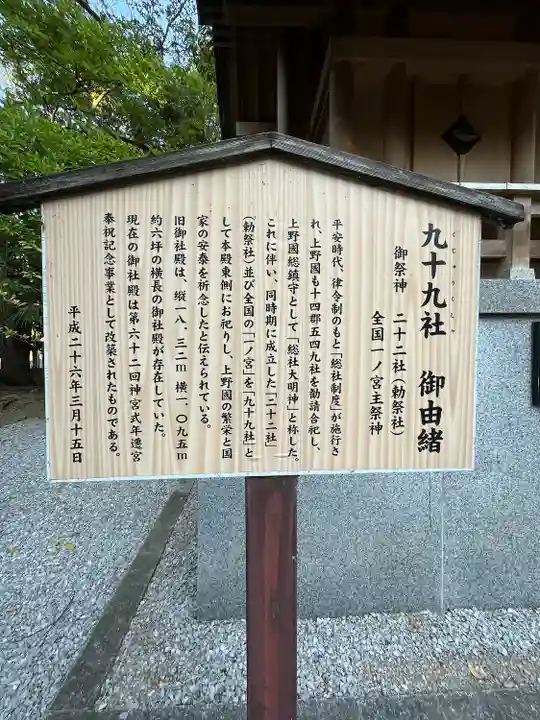 くじゅうくしゃ
九十九社 御由緒
御祭神 二十二社(勅祭社)
全国一ノ宮主祭神
平安時代、律令制のもと「総社制度」が施行さ
れ、上野國も十四郡五四九社を勧請合祀し、
上野國総鎮守として「総社大明神」と称した。
これに伴い、同時期に成立した「二十二社」
(勅祭社)並び全国の「一ノ宮」を「九十九社」と
して本殿東側にお祀りし、上野國の繁栄と国
家の安泰を祈念したと伝えられている。
旧御社殿は、縦一八、三二m 横一、〇九五m
約六坪の横長の御社殿が存在していた。
現在の御社殿は第六十二回神宮式年遷宮
奉祝記念事業として改築されたものである。
平成二十六年三月十五日